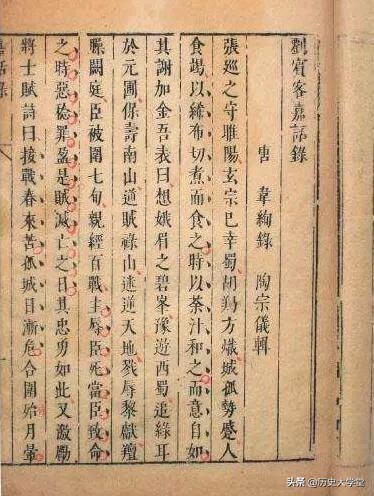 劉賓客嘉話錄
唐 韋絢錄 陶宗儀輯
張巡之守睢陽玄宗已幸蜀胡方熾城孤勢蹙人
食竭以絺布切煮而食之時以茶汁和之而意自如
其謝加金吾表曰想娥眉之碧峯豫遊西蜀追綠耳
於元圃保壽南山道賊祿山迷逆天地戮辱黎獻羶
臊闕庭臣被圍七旬親經百戰主辱臣死當臣致命
之時惡稔罪盈是賊滅亡之日其忠勇如此又激勵
將士賦詩曰接戰春來苦孤城日漸危合圍始月暈
头条 @历史大学堂